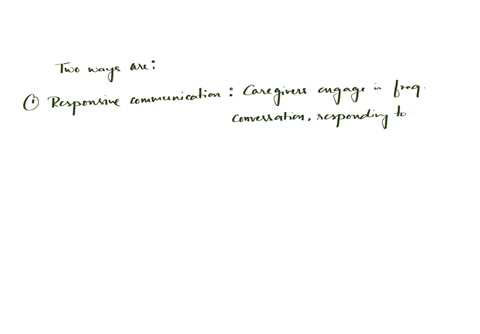 Two ways are:
(i) Responsive communication : Caregivers engage in freq.
conversation, responding to